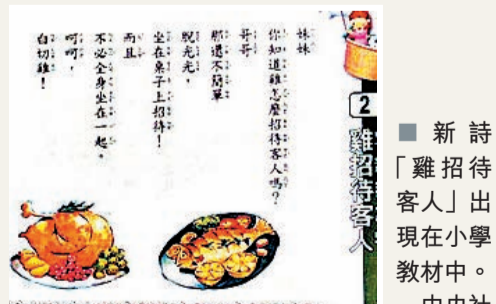 2
雞招待客人
妹妹
你知道雞怎麼招待客人嗎？
哥哥
那還不簡單
脫光光，
坐在桌子上招待！
而且
不必全身坐在一起。
呵呵，
白切雞！
■ 新詩
「雞招待
客人」出
現在小學
教材中。
中央社